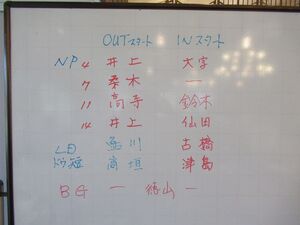 OUTスタート INスタート
NP 4 井上 大字
7 桑木 ー
11 高寺 鈴木
14 井上 仙田
LD 鮎川 古橋
ドラ短 高垣 津島
BG ー 徳山 ー